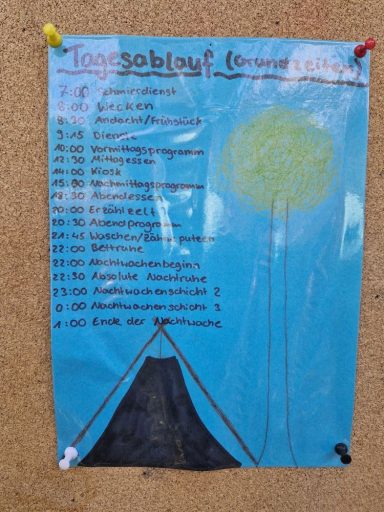 Tagesablauf (Grundzeiten)
7:00 Schmierdienst
8:00 Wecken
8:30 Andacht/Frühstück
9:15 Dienste
10:00 Vormittagsprogramm
12:30 Mittagessen
14:00 Kiosk
15:00 Nachmittagsprogramm
18:30 Abendessen
20:00 Erzählzelt
20:30 Abendprogramm
21:45 Waschen/Zähne putzen
22:00 Bettruhe
22:00 Nachtwachenbeginn
22:30 Absolute Nachtruhe
23:00 Nachtwachenschicht 2
0:00 Nachtwachenschicht 3
1:00 Ende der Nachtwache